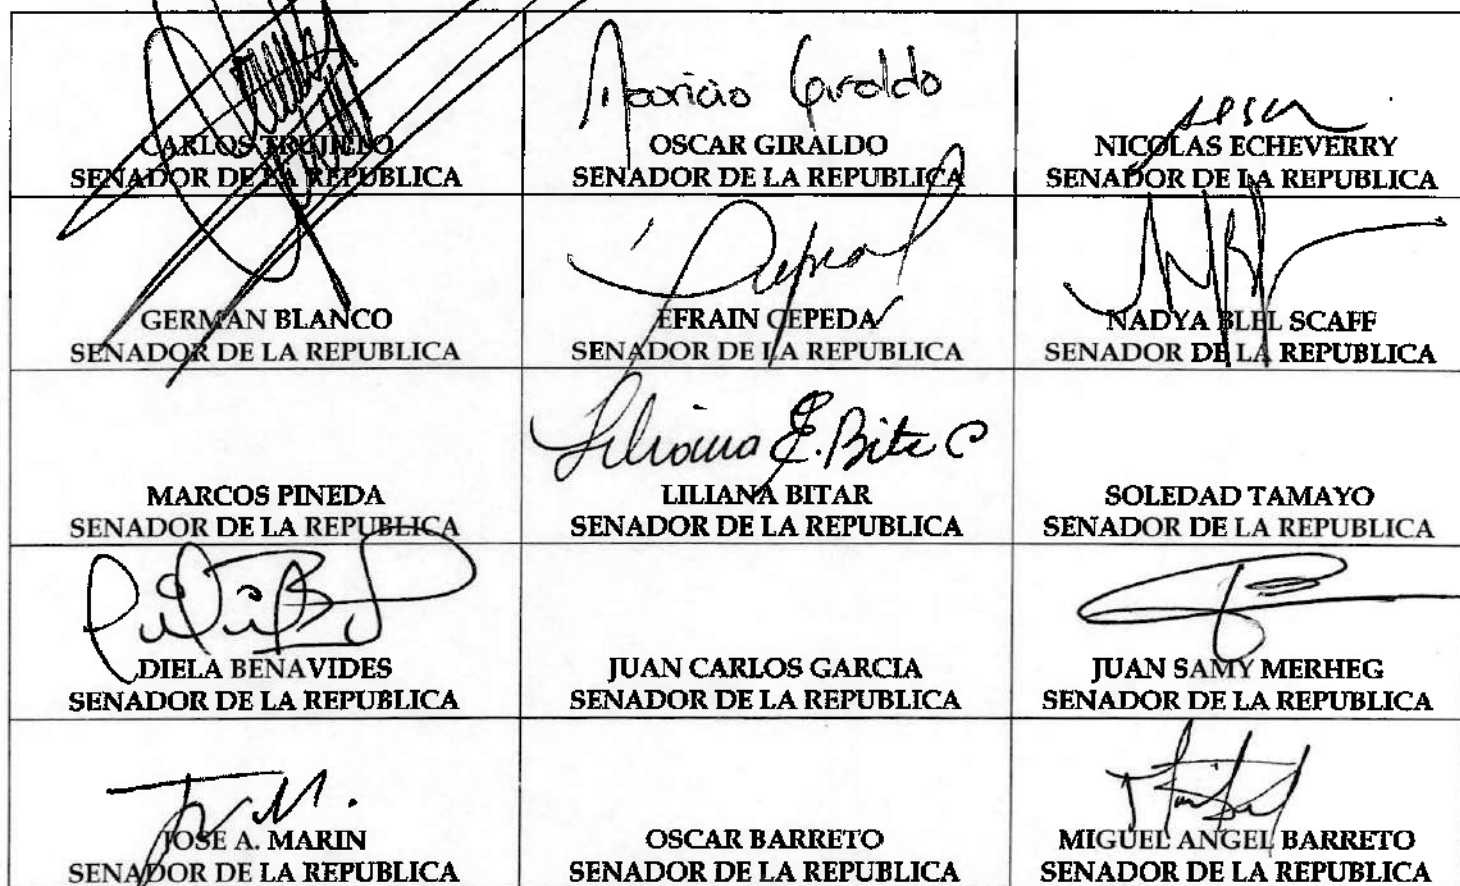 Mauricio Giraldo
CARLOS TRUJILLO
SENADOR DE LA REPUBLICA
OSCAR GIRALDO
SENADOR DE LA REPUBLICA
NICOLAS ECHEVERRY
SENADOR DE LA REPUBLICA
GERMAN BLANCO
SENADOR DE LA REPUBLICA
EFRAIN CEPEDA
SENADOR DE LA REPUBLICA
NADYA BLEL SCAFF
SENADOR DE LA REPUBLICA
MARCOS PINEDA
SENADOR DE LA REPUBLICA
Liliana E. Bitar
LILIANA BITAR
SENADOR DE LA REPUBLICA
SOLEDAD TAMAYO
SENADOR DE LA REPUBLICA
DIELA BENAVIDES
SENADOR DE LA REPUBLICA
JUAN CARLOS GARCIA
SENADOR DE LA REPUBLICA
JUAN SAMY MERHEG
SENADOR DE LA REPUBLICA
JOSE A. MARIN
SENADOR DE LA REPUBLICA
OSCAR BARRETO
SENADOR DE LA REPUBLICA
MIGUEL ANGEL BARRETO
SENADOR DE LA REPUBLICA